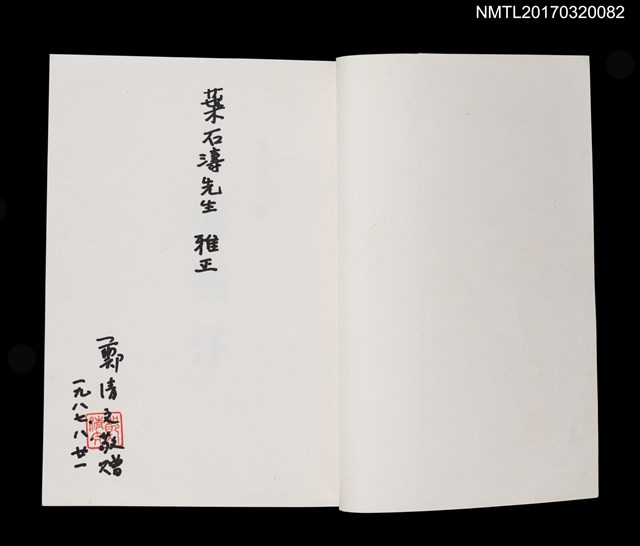 NMTL20170320082
葉石濤先生 雅正
鄭清文敬贈
一九八七.八.廿一